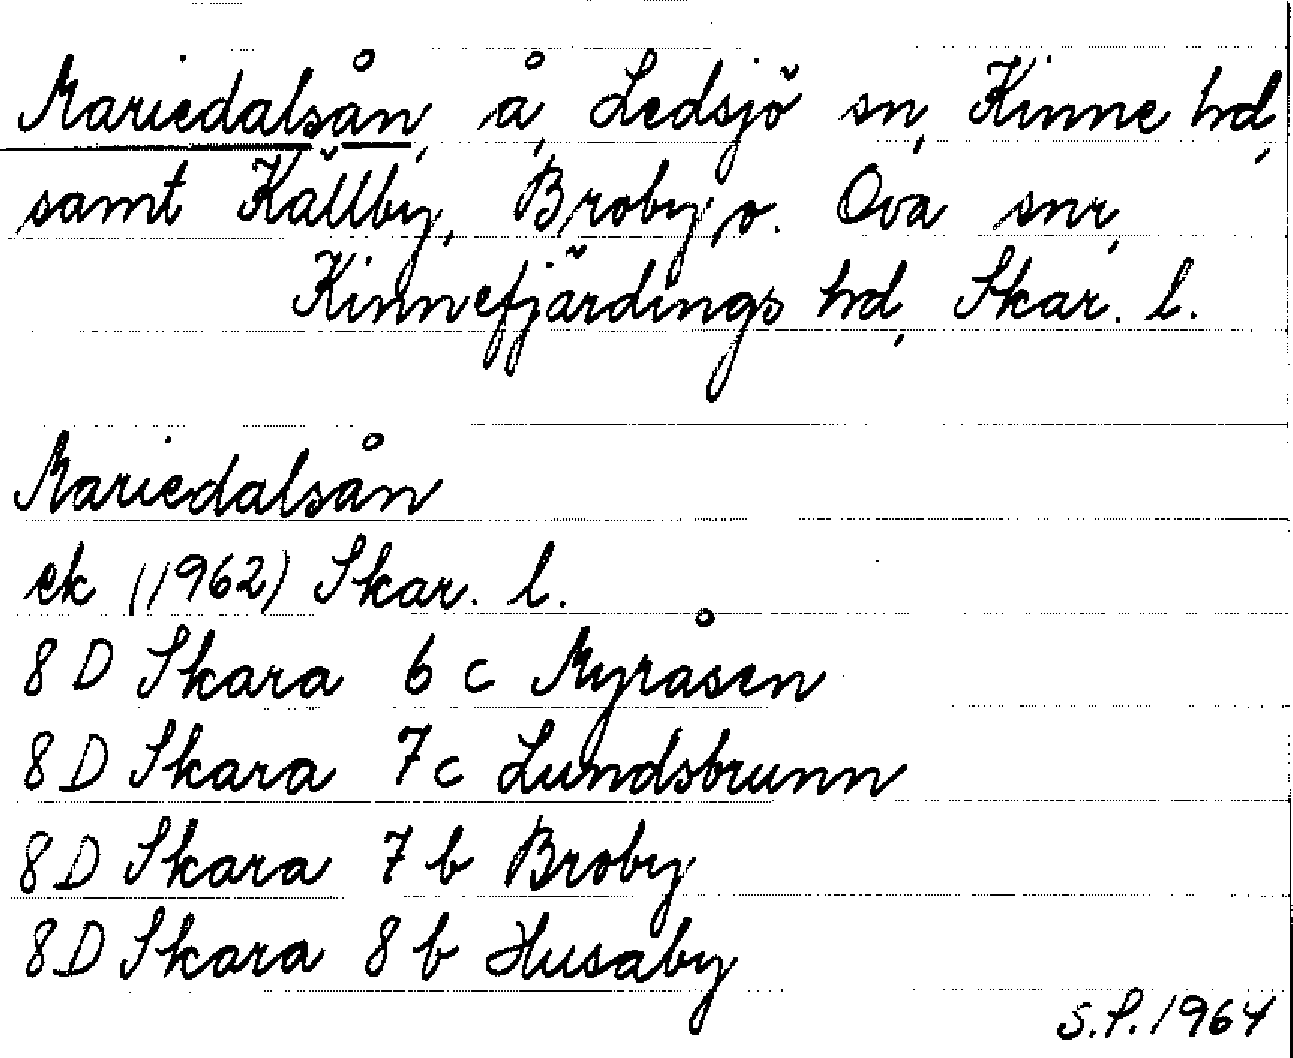 Mariedalsån, å, Ledsjö sn, Kinne hd,
samt Källby, Broby o. Ova snr,
Kinnefjärdings hd, Skar. l.
Mariedalsån
ek (1962) Skar. l.
8 D Skara 6 c Myråsen
8 D Skara 7 c Lundsbrunn
8 D Skara 7 b Broby
8 D Skara 8 b Husaby
S.P. 1964